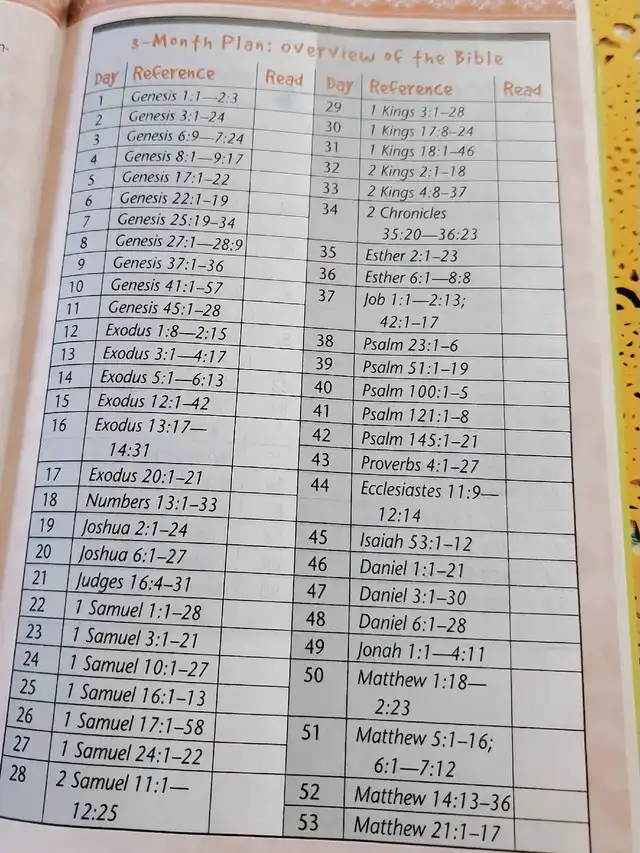 3-Month Plan: overview of the Bible
Day Reference Read
1 Genesis 1:1—2:3
2 Genesis 3:1–24
3 Genesis 6:9–7:24
4 Genesis 8:1–9:17
5 Genesis 17:1–22
6 Genesis 22:1–19
7 Genesis 25:19–34
8 Genesis 27:1—28:9
9 Genesis 37:1–36
10 Genesis 41:1–57
11 Genesis 45:1–28
12 Exodus 1:8—2:15
13 Exodus 3:1—4:17
14 Exodus 5:1—6:13
15 Exodus 12:1–42
16 Exodus 13:17—
14:31
17 Exodus 20:1–21
18 Numbers 13:1–33
19 Joshua 2:1–24
20 Joshua 6:1–27
21 Judges 16:4–31
22 1 Samuel 1:1–28
23 1 Samuel 3:1–21
24 1 Samuel 10:1–27
25 1 Samuel 16:1–13
26 1 Samuel 17:1–58
27 1 Samuel 24:1–22
28 2 Samuel 11:1—
12:25
Day Reference Read
29 1 Kings 3:1–28
30 1 Kings 17:8–24
31 1 Kings 18:1–46
32 2 Kings 2:1–18
33 2 Kings 4:8–37
34 2 Chronicles
35:20—36:23
35 Esther 2:1–23
36 Esther 6:1—8:8
37 Job 1:1—2:13;
42:1–17
38 Psalm 23:1–6
39 Psalm 51:1–19
40 Psalm 100:1–5
41 Psalm 121:1–8
42 Psalm 145:1–21
43 Proverbs 4:1–27
44 Ecclesiastes 11:9—
12:14
45 Isaiah 53:1–12
46 Daniel 1:1–21
47 Daniel 3:1–30
48 Daniel 6:1–28
49 Jonah 1:1—4:11
50 Matthew 1:18—
2:23
51 Matthew 5:1–16;
6:1—7:12
52 Matthew 14:13–36
53 Matthew 21:1–17